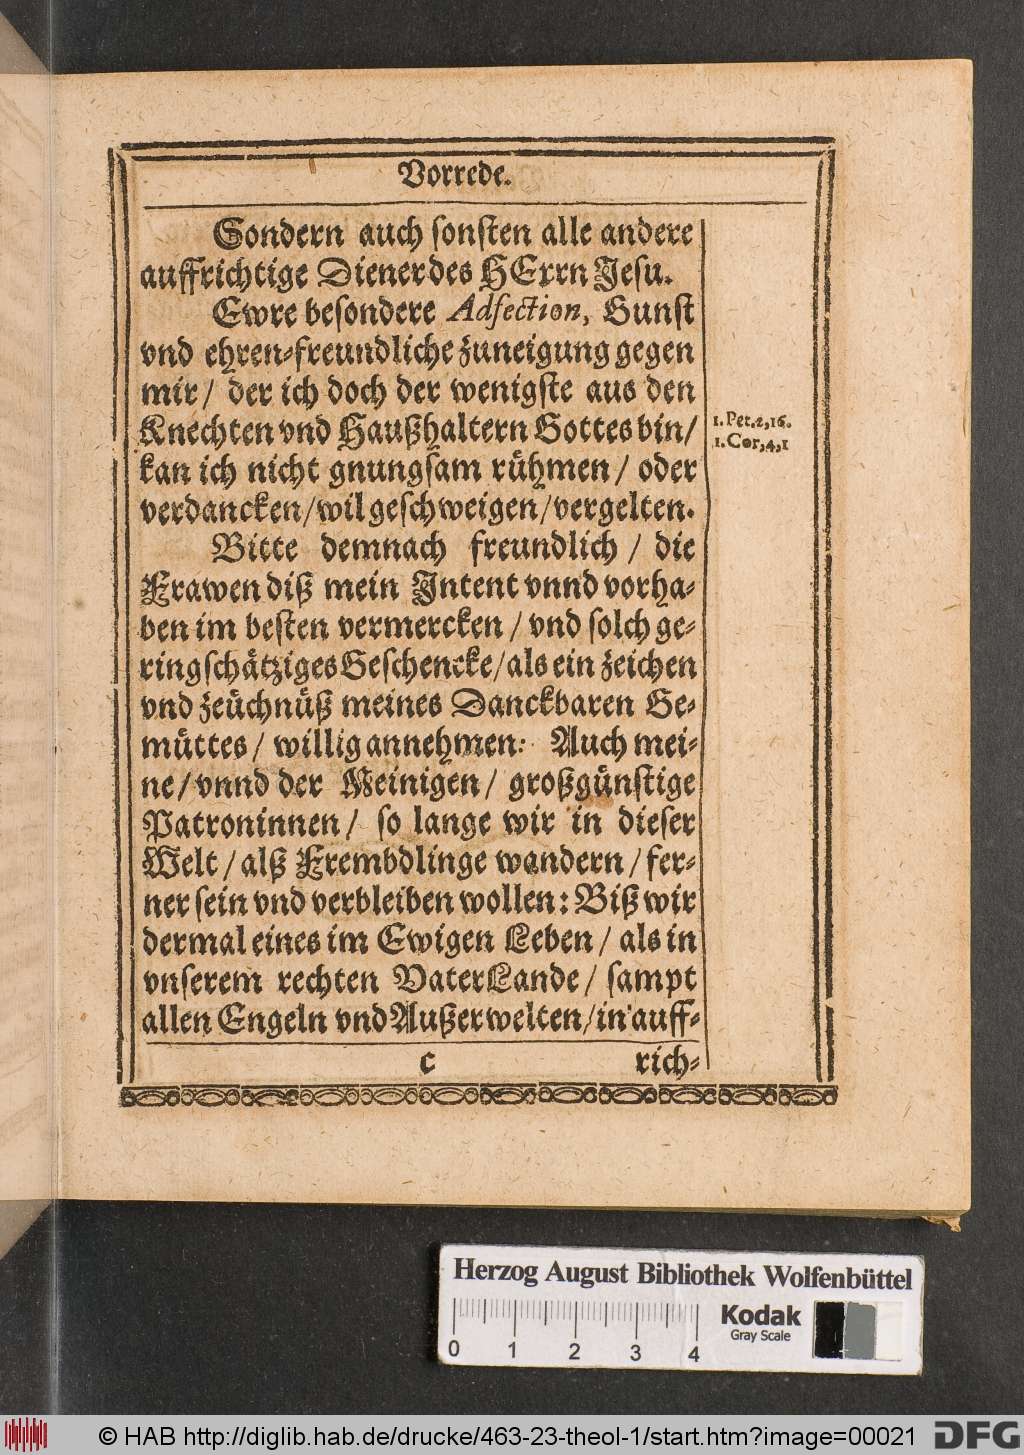 Vorrede.
Sondern auch sonsten alle andere
auffrichtige Diener des HErrn Jesu.
Ewre besondere Adfection, Gunst
vnd ehren-freundliche zuneigung gegen
mir / der ich doch der wenigste aus den
Knechten vnd Haußhaltern Gottes bin /
1. Pet. 2, 16.
1. Cor, 4, 1
kan ich nicht gnungsam rühmen / oder
verdancken / wil geschweigen / vergelten.
Bitte demnach freundlich / die
Frawen diß mein Intent vnnd vorha-
ben im besten vermercken / vnd solch ge-
ringschätziges Geschencke / als ein zeichen
vnd zeüchnüß meines Danckbaren Ge-
müttes / willig annehmen: Auch mei-
ne / vnnd der Meinigen / großgünstige
Patroninnen / so lange wir in dieser
Welt / alß Frembdlinge wandern / fer-
ner sein vnd verbleiben wollen: Biß wir
dermal eines im Ewigen Leben / als in
vnserem rechten VaterLande / sampt
allen Engeln vnd Außerwelten / in auff-
c rich-
Herzog August Bibliothek Wolfenbüttel
0 1 2 3 4
Kodak
Gray Scale
© HAB http://diglib.hab.de/drucke/463-23-theol-1/start.htm?image=00021
DFG